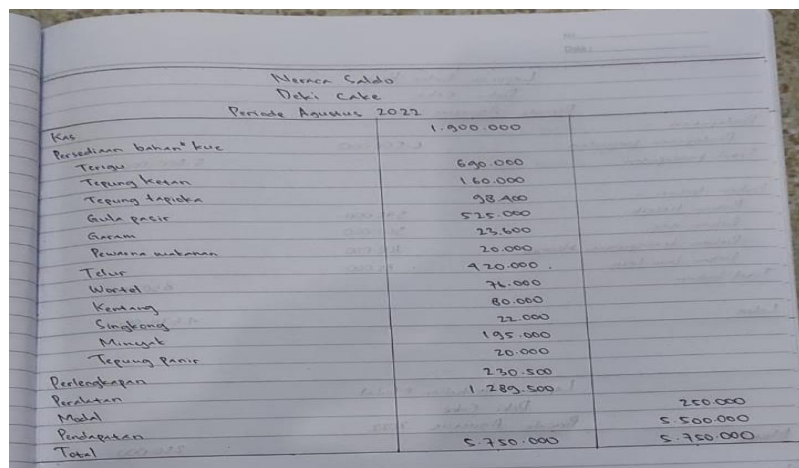 Neraca Saldo
Deki Cake
Periode Agustus 2022
Kas 1.900.000
Persediaan bahan" kue
Terigu 690.000
Tepung Ketan 160.000
Tepung tapioka 98.400
Gula pasir 525.000
Garam 23.600
Pewarna makanan 20.000
Telur 420.000
Wortel 76.000
Kentang 80.000
Singkong 22.000
Minyak 195.000
Tepung Panir 20.000
Perlengkapan 230.500
Peralatan 1.289.500
Modal 250.000
Pendapatan 5.500.000
Total 5.750.000 5.750.000